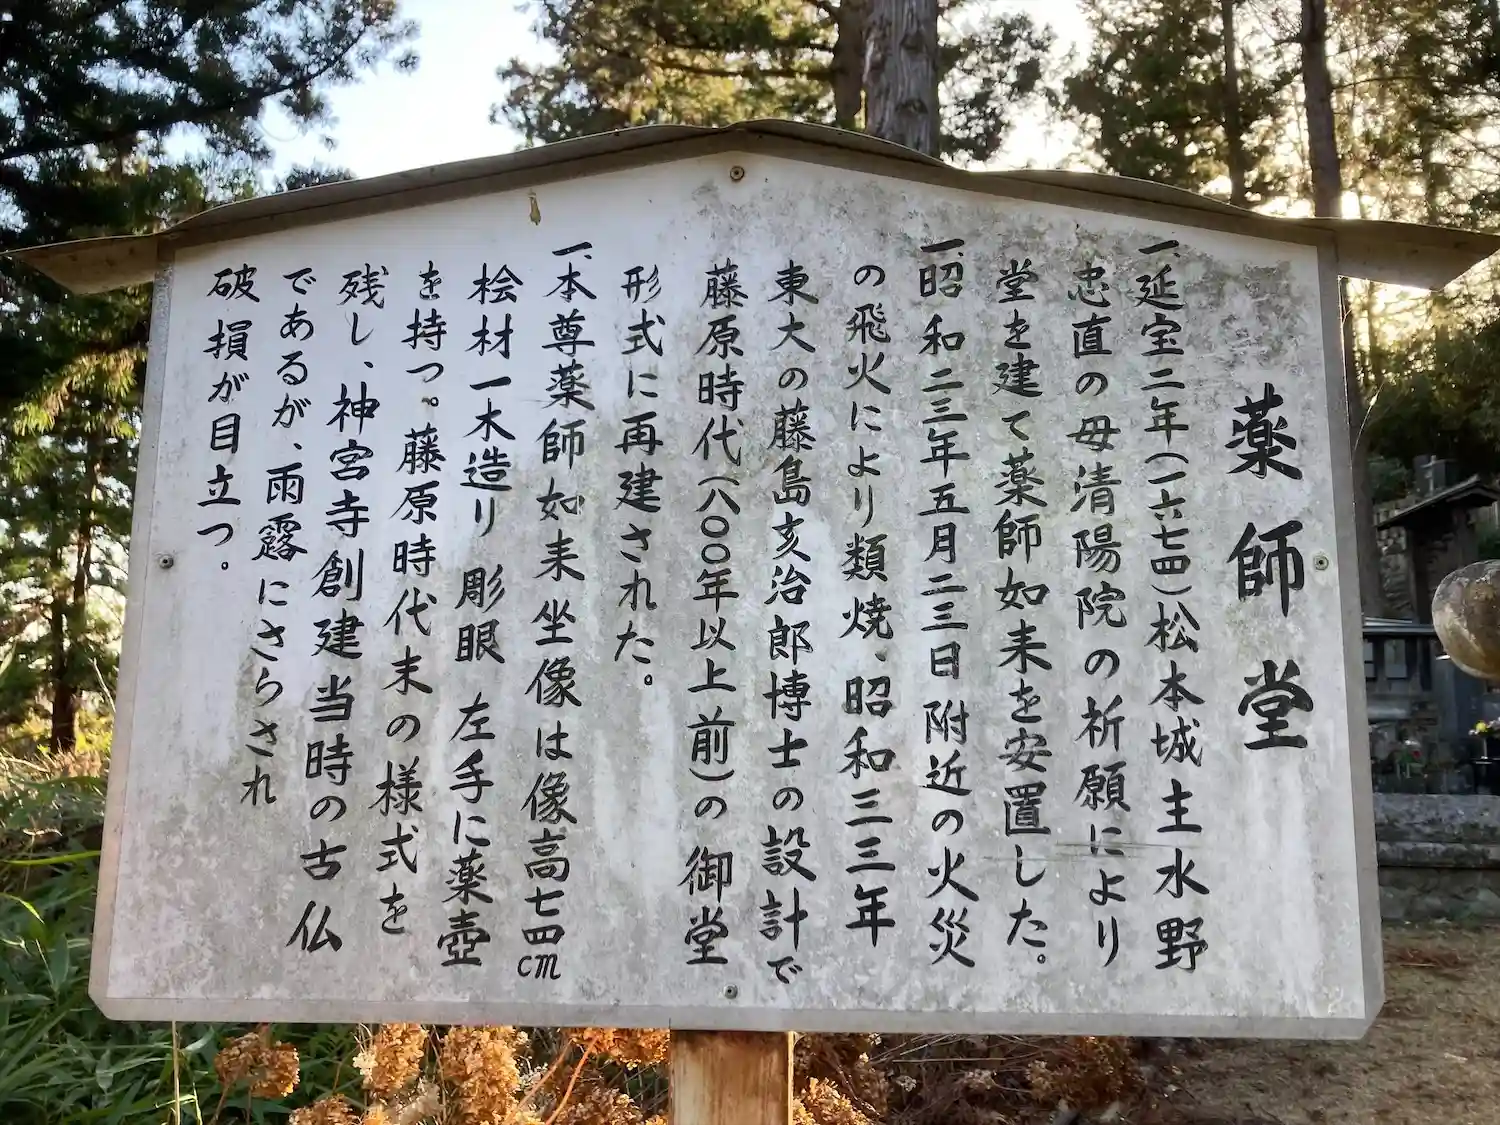 薬師堂
一、延宝二年(一六七四)松本城主水野
忠直の母清陽院の祈願により
堂を建て薬師如来を安置した。
一、昭和二三年五月二三日附近の火災
の飛火により類焼、昭和三三年
東大の藤島亥治郎博士の設計で
藤原時代(八〇〇年以上前)の御堂
形式に再建された。
一、本尊薬師如来坐像は像高七四cm
桧材一木造り彫眼左手に薬壺
を持つ。藤原時代末の様式を
残し、神宮寺創建当時の古仏
であるが、雨露にさらされ
破損が目立つ。